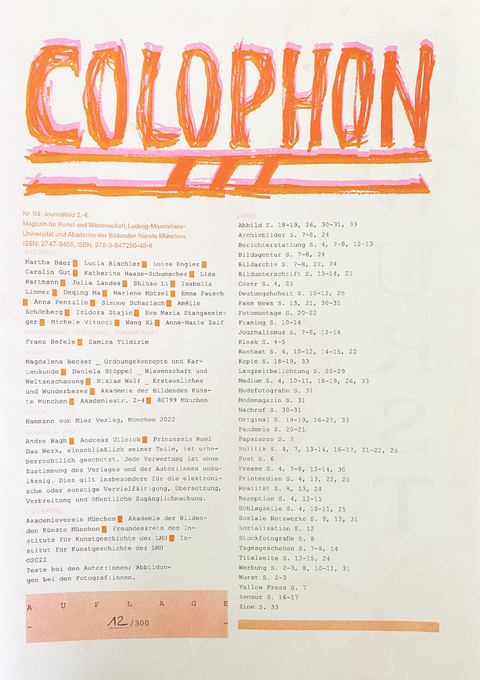 COLOPHON
III
Nr. 03: Journalbild 2,-€
Magazin für Kunst und Wissenschaft, Ludwig-Maximilians-
Universität und Akademie der Bildenden Künste München,
ISSN: 2747-9455, ISBN: 978-3-947250-48-6
BEITRÄGE
Martha Baer Lucia Blachler Luisa Engler
Carolin Gut Katherine Haase-Schumacher Lisa
Hartmann Julia Landes Shihao Li Isabella
Limmer Deqing Ma Marlene Mützel Emma Pausch
Anna Pentzlin Simone Scharlach Amélie
Schömberg Isidora Stajic Eva Maria Stangassin-
ger Michele Vitucci Wang Xi Anne-Marie Zeif
Franz Hefele Samira Yildirim
REDAKTION
Magdalena Becker _ Ordnungskonzepte und Kar-
tenkunde Daniela Stöppel _ Wissenschaft und
Weltanschauung Niklas Wolf _ Erstaunliches
und Wunderbares Akademie der Bildenden Küns-
te München Akademiestr. 2-4 80799 München
VERLAG
Hammann von Mier Verlag, München 2022
GRAFIK & DRUCK
Andre Bagh Andreas Ullrich Prinzessin Rosi
Das Werk, einschließlich seiner Teile, ist urhe-
berrechtlich geschützt. Jede Verwertung ist ohne
Zustimmung des Verlages und der Autor:innen unzu-
lässig. Dies gilt insbesondere für die elektroni-
sche oder sonstige Vervielfältigung, Übersetzung,
Verbreitung und öffentliche Zugänglichmachung.
FÖRDERUNG
Akademieverein München Akademie der Bilden-
den Künste München Freundeskreis des In-
stituts für Kunstgeschichte der LMU In-
stitut für Kunstgeschichte der LMU
©2022
Texte bei den Autor:innen; Abbildun-
gen bei den Fotograf:innen.
A U F L A G E
12/300
INDEX
Abbild S. 18-19, 26, 30-31, 33
Archivbilder S. 7-8, 24
Berichterstattung S. 4, 7-8, 12-13
Bildagentur S. 7-8, 24
Bildarchiv S. 7-8, 22, 24
Bildunterschrift S. 13-14, 21
Cover S. 4, 25
Deutungshoheit S. 10-12, 25
Fake News S. 13, 21, 30-31
Fotomontage S. 20-22
Framing S. 10-14
Journalismus S. 7-8, 12-14
Kiosk S. 4-5
Kontext S. 4, 10-12, 14-15, 22
Kopie S. 18-19, 33
Langzeitbelichtung S. 26-29
Medium S. 4, 10-11, 18-19, 26, 33
Modefotografie S. 31
Modemagazin S. 31
Nachruf S. 30-31
Original S. 18-19, 26-27, 33
Pandemie S. 20-21
Paparazzo S. 7
Politik S. 4, 7, 13, 14, 16-17, 21-22, 25
Post S. 6
Presse S. 4, 7-8, 13-14, 30
Printmedien S. 4, 13, 22, 25
Realität S. 6, 13, 24
Rezeption S. 4, 12-15
Schlagzeile S. 4, 10-11, 25
Soziale Netzwerke S. 8, 13, 31
Sozialisation S. 12
Stockfotografie S. 8
Tagesgeschehen S. 7-8, 14
Titelseite S. 13-15, 24
Werbung S. 2-3, 8, 10-11, 31
Wurst S. 2-3
Yellow Press S. 7
Zensur S. 16-17
Zine S. 33